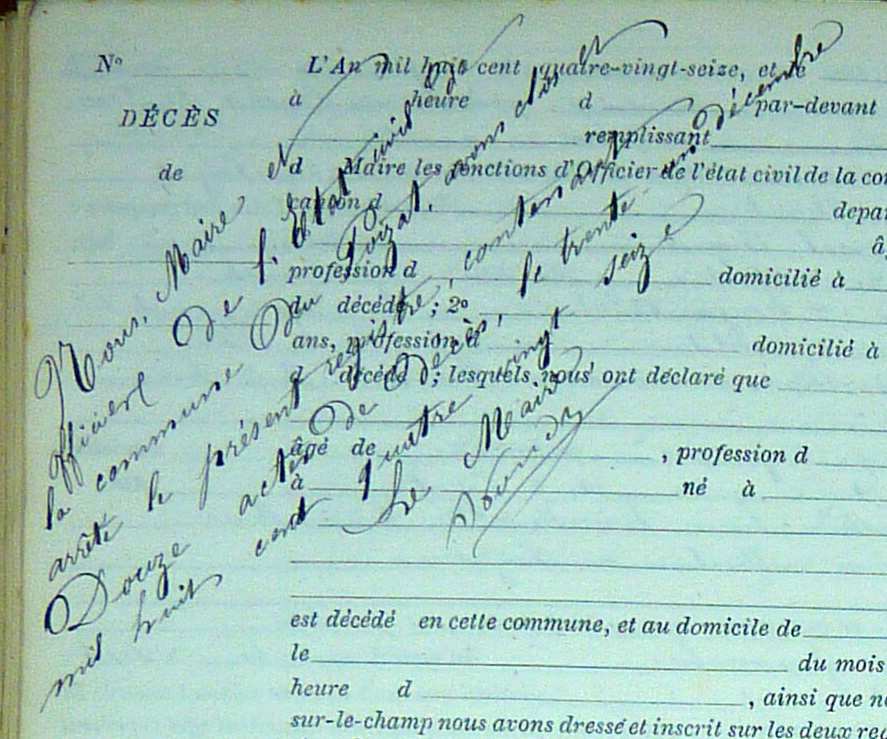 N°
DÉCÈS
de
L'An mil huit cent quatre-vingt-seize, et le
à heure d par-devant
remplissant
d Maire les fonctions d'Officier de l'état civil de la con
canton d depar
â
profession d domicilié à
d décédé ; 2°
ans, profession d domicilié à
d décédé ; lesquels nous ont déclaré que
âgé de , profession d
à né à
est décédé en cette commune, et au domicile de
le du mois
heure d , ainsi que n
sur-le-champ nous avons dressé et inscrit sur les deux reg
Nous, Maire et
officier de l'Etat civil de
la commune du Poizat, avons clos et
arrêté le présent registre, contenant
Douze actes de Décès, le trente un décembre
mil huit cent quatre vingt seize
Le Maire